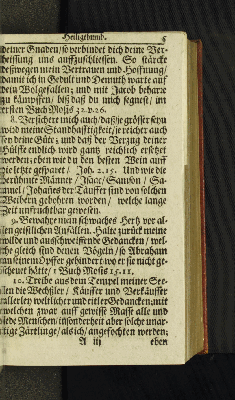 Heiligthumb. 5
deiner Gnaden/ so verbindet dich deine Ver-
heissung uns auffzuschliessen. So stärcke
deßwegen mein Vertrauen und Hoffnung/
damit ich in Gedult und Demuth warte auf
dein Wolgefallen; und mit Jacob beharre
zu kämpffen/ biß daß du mich segnest/ im
ersten Buch Mosis 32. v. 26.
8. Versichere mich auch/ daß je grösser seyn
wird meine Standhafftigkeit/ je reicher auch
sey deine Güte; und daß der Verzug deiner
Hülffe endlich wird gantz reichlich ersetzet
werden; eben wie du den besten Wein auff
die letzte gesparet/ Joh. 2. 15. Und wie die
berühmte Männer/ Isaac/ Samson/ Sa-
muel/ Johannes der Täuffer sind von solchen
Weibern gebohren worden/ welche lange
Zeit unfruchtbar gewesen.
9. Bewahre mein schwaches Hertz vor al-
len geistlichen Anfällen. Halte zurück meine
wilde und ausschweiffende Gedancken/ wel-
che gleich sind denen Vögeln/ so Abraham
an seinem Opffer gehindert/ wo er sie nicht ge-
scheuet hätte/ 1 Buch Mosis 15. 11.
10. Treibe aus dem Tempel meiner See-
len die Wechßler/ Käuffer und Verkäuffer
allerley weltlicher und eitler Gedancken; mit
welchen zwar auff gewisse Masse alle und
jede Menschen/ insonderheit aber solche unar-
tige Zärtlinge/ als ich/ angefochten werden;
A iij eben